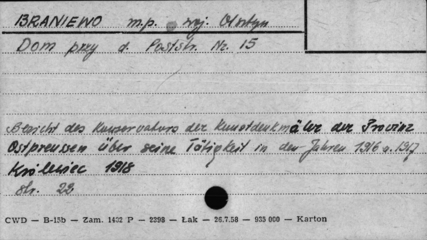 BRANIEWO m.p. woj. Olsztyn
Dom przy d. Poststr. Nr. 15
Bericht des Konservators der Kunstdenkmäler der Provinz
Ostpreussen über seine Tätigkeit in den Jahren 1916 u. 1917
Królewiec 1918
str. 23
CWD — B-15b — Zam. 1452 P — 2298 — Łak — 26.7.58 — 935 000 — Karton